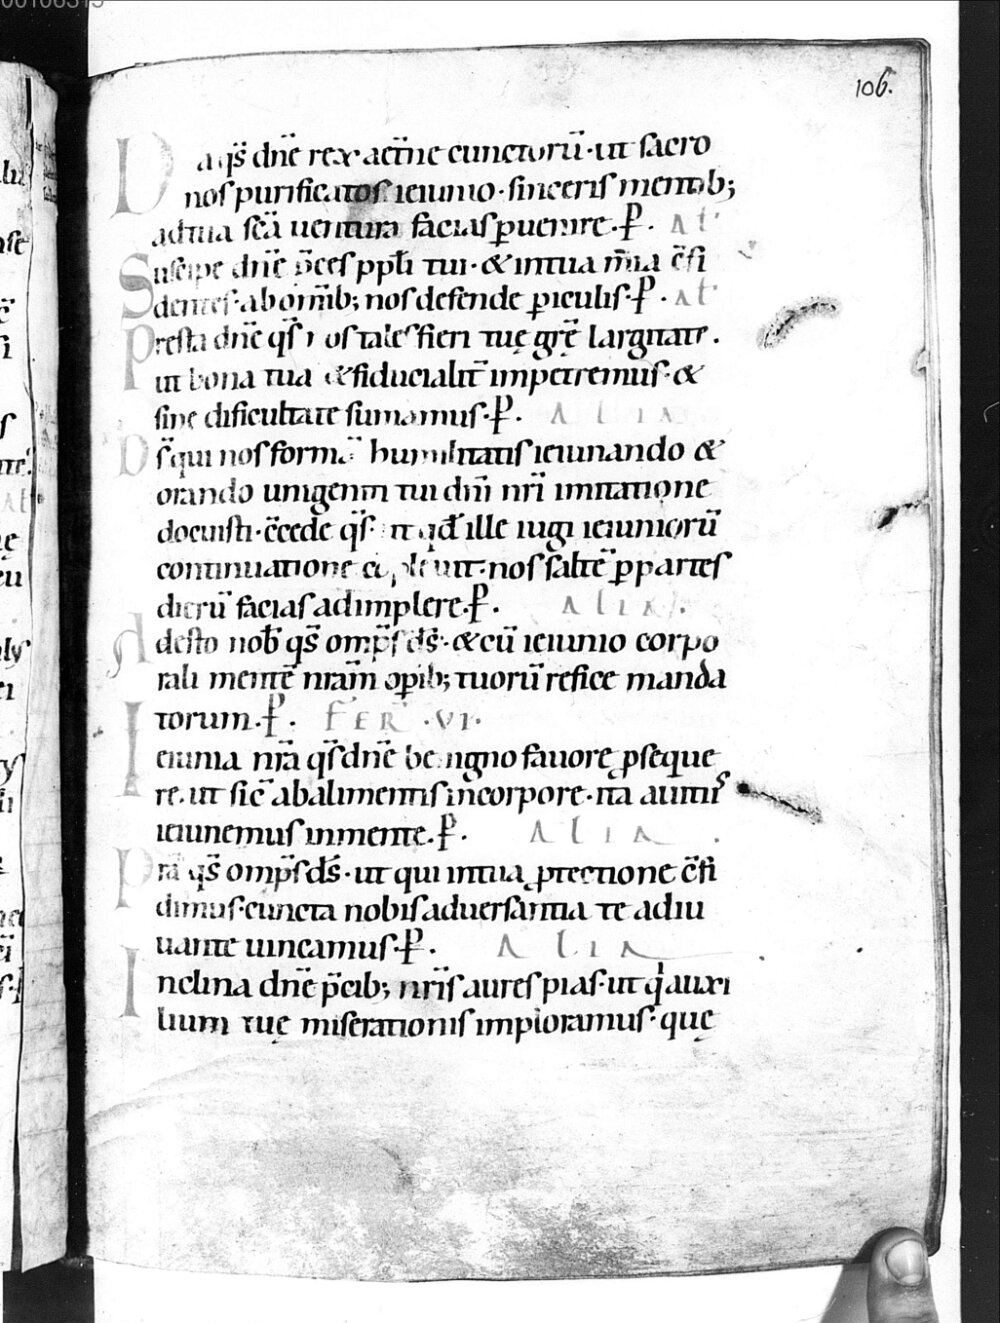 106.
Da qs̄ dn̄e rex aet̄ne cunctorū·ut sacro
nos purificatos ieiunio·sinceris mentib;
ad tua sc̄ā uentura facias ꝑuenire·P̄. At'
Suscipe dn̄e p̄ces ppl̄i tui·& in tua m̄ia c̄fi
dentes·ab om̄ib; nos defende ꝑiculis·P̄. At'
Presta dn̄e qs̄ nos tales fieri tuę gr̄ę largitate.
ut bona tua & fiducialit̄ impetremus·&
sine dificultate sumamus·P̄. ALIA
Ds̄ qui nos formā humilitatis ieiunando &
orando unigeniti tui dn̄i nr̄i imitatione
docuisti·c̄cede qs̄·ut qd̄ ille iugi ieiuniorū
continuatione cōpleuit·nos saltē ꝑ partes
dierū facias adimplere·P̄. ALIA.
Adesto nob̄ qs̄ omp̄s ds̄·& cū ieiunio corpo
rali mentē nrām oꝑib; tuorū refice manda
torum·P̄. FER̄·VI·
Ieiunia nr̄a qs̄ dn̄e benigno fauore ꝓseque
re. ut sic̄ ab alimentis in corpore·ita a uitiis
ieiunemus in mente·P̄. ALIA
Prā qs̄ omp̄s ds̄·ut qui in tua ꝓtectione c̄fi
dimus·cuncta nobis aduersantia te adiu
uante uincamus·P̄. ALIA
Inclina dn̄e p̄cib; nr̄is aures pias·ut qͥ auxi
lium tuę miserationis imploramus·quę